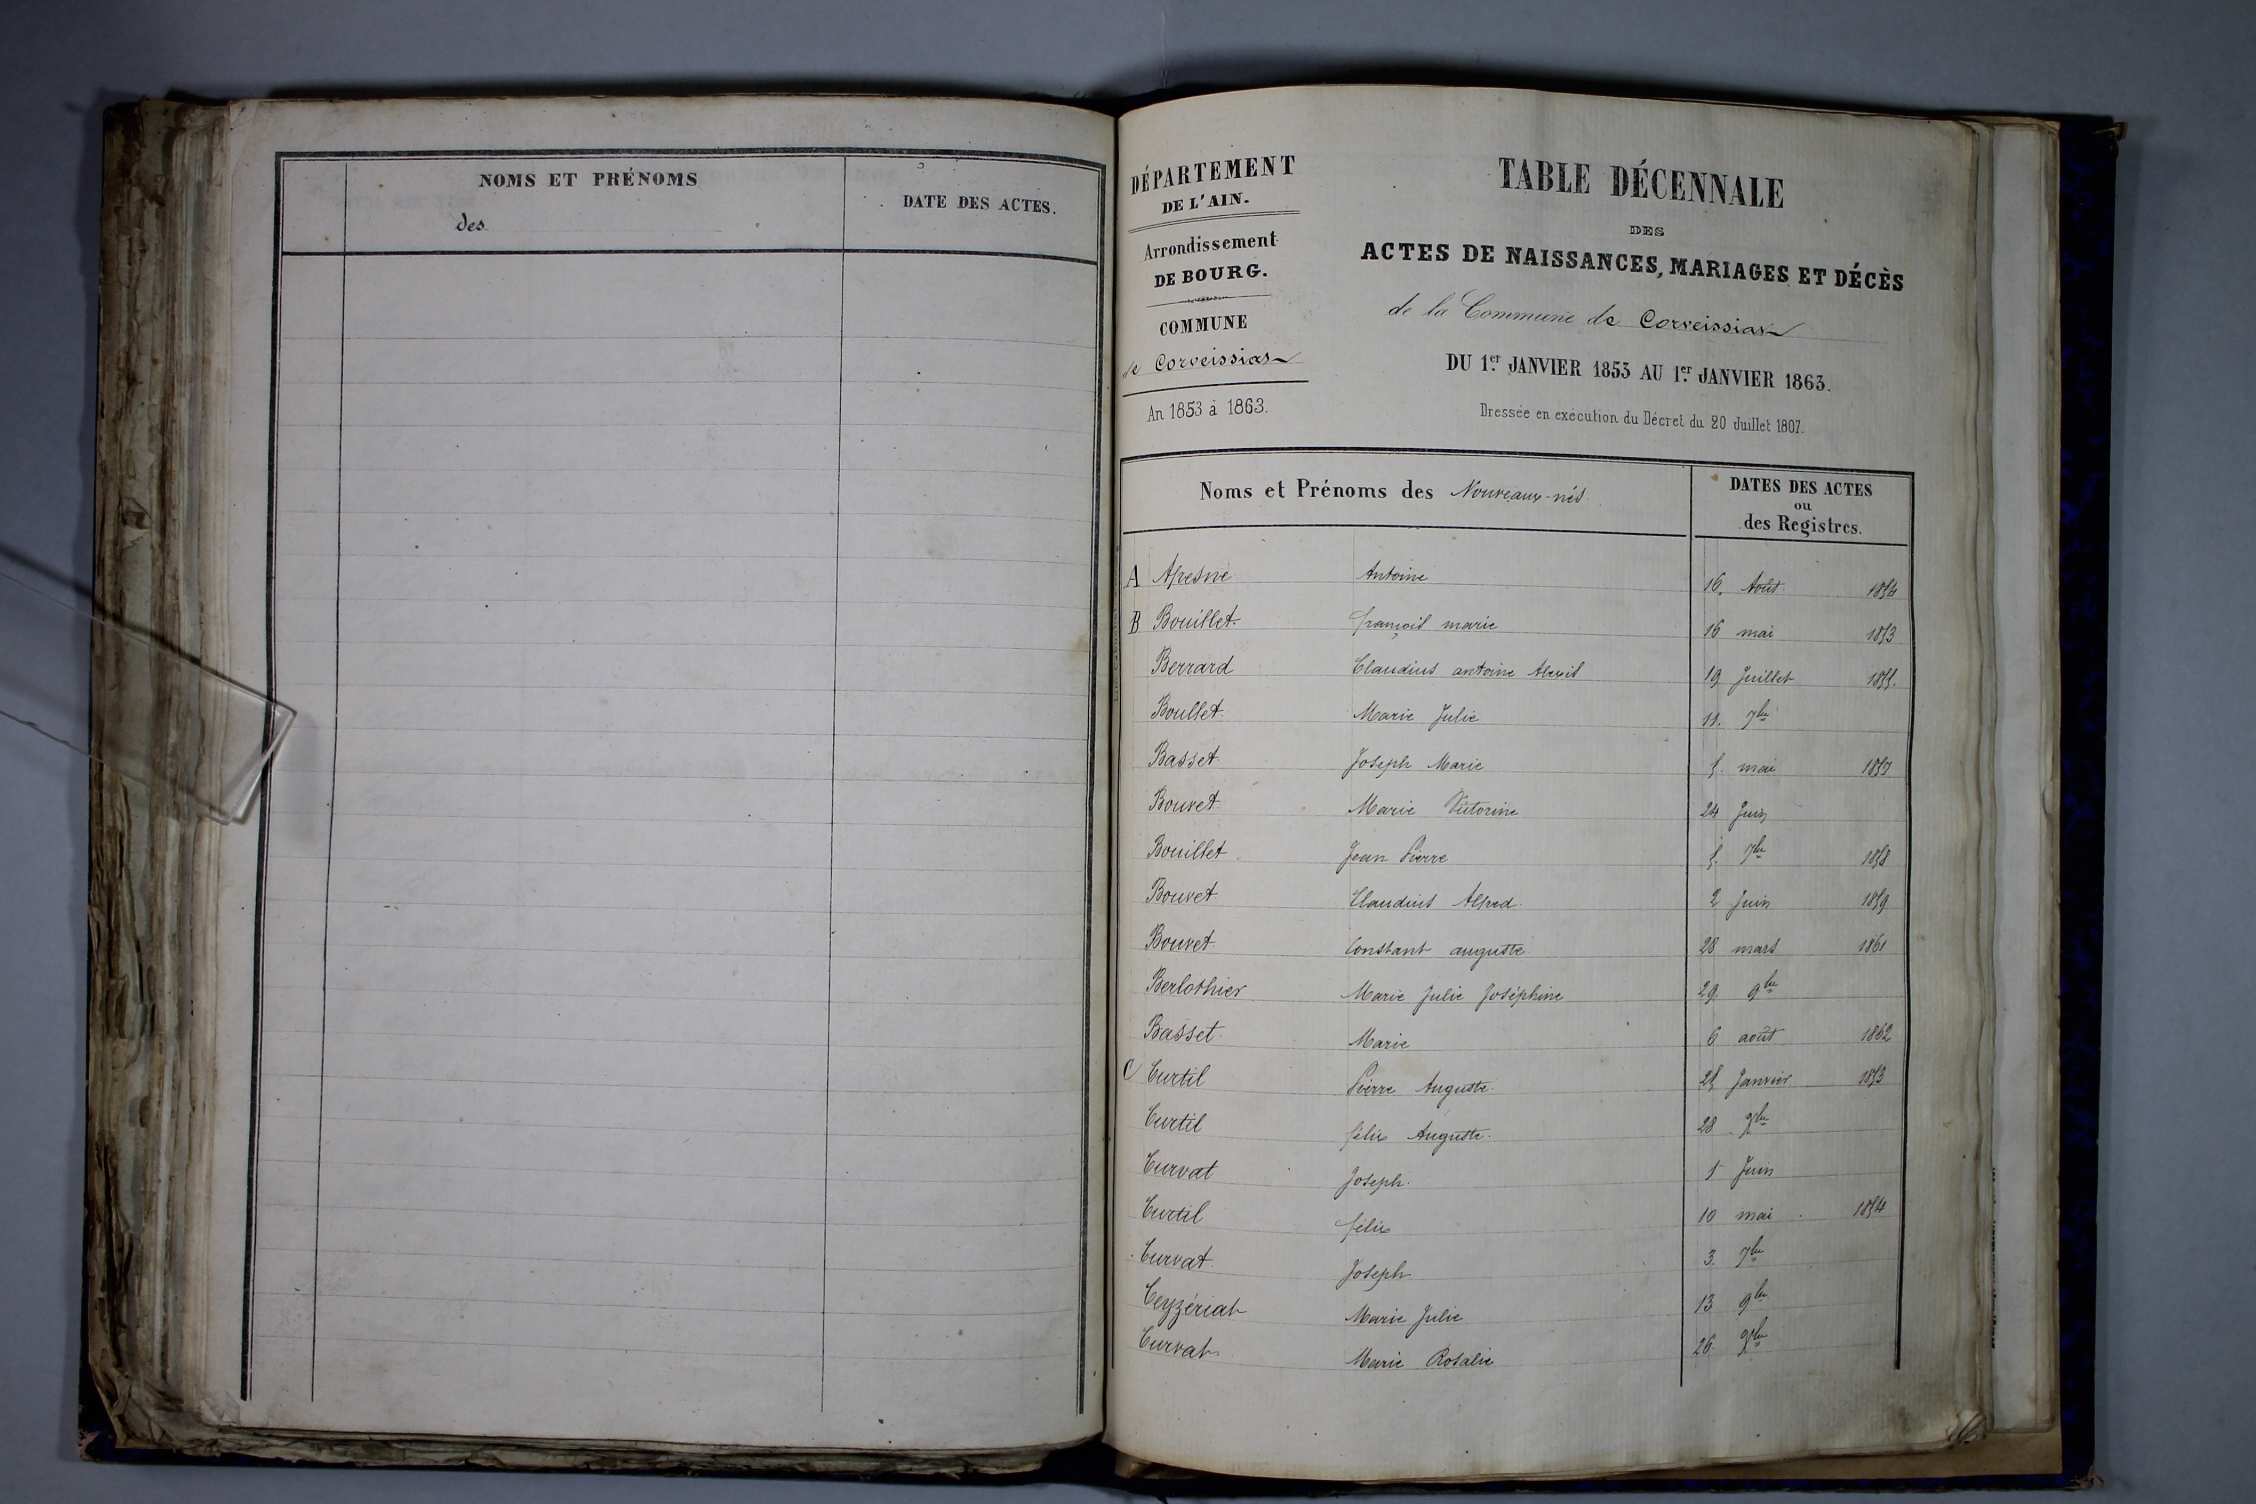 NOMS ET PRÉNOMS
des
DATE DES ACTES.
DÉPARTEMENT
DE L'AIN.
Arrondissement
DE BOURG.
COMMUNE
de Corveissiat
An 1853 à 1863.
TABLE DÉCENNALE
DES
ACTES DE NAISSANCES, MARIAGES ET DÉCÈS
de la Commune de Corveissiat
DU 1er JANVIER 1853 AU 1er JANVIER 1863.
Dressée en exécution du Décret du 20 Juillet 1807.
Noms et Prénoms des Nouveaux-nés
DATES DES ACTES
ou
des Registres.
A Apesne Antoine 16. Août 1854
B Bouillet françois marie 16 mai 1853
Berrard Claudius antoine Alexis 19 Juillet 1855.
Boullet Marie Julie 11. 7bre
Basset Joseph Marie 5. mai 1857
Bouvet Marie Victorine 24 Juin
Bouillet Jean Pierre 5. 7bre 1858
Bouvet Claudius Alfred 2 Juin 1859
Bouvet Constant auguste 28 mars 1861
Berlothier Marie Julie Joséphine 29. 9bre
Basset Marie 6 août 1862
C Curtil Pierre Auguste 25 Janvier 1853
Curtil félix Auguste 28
Curvat Joseph 1 Juin
Curtil félix 10 mai 1854
Curvat Joseph 3. 7bre
Ceyzériat Marie Julie 13 9bre
Curvat Marie Rosalie 26